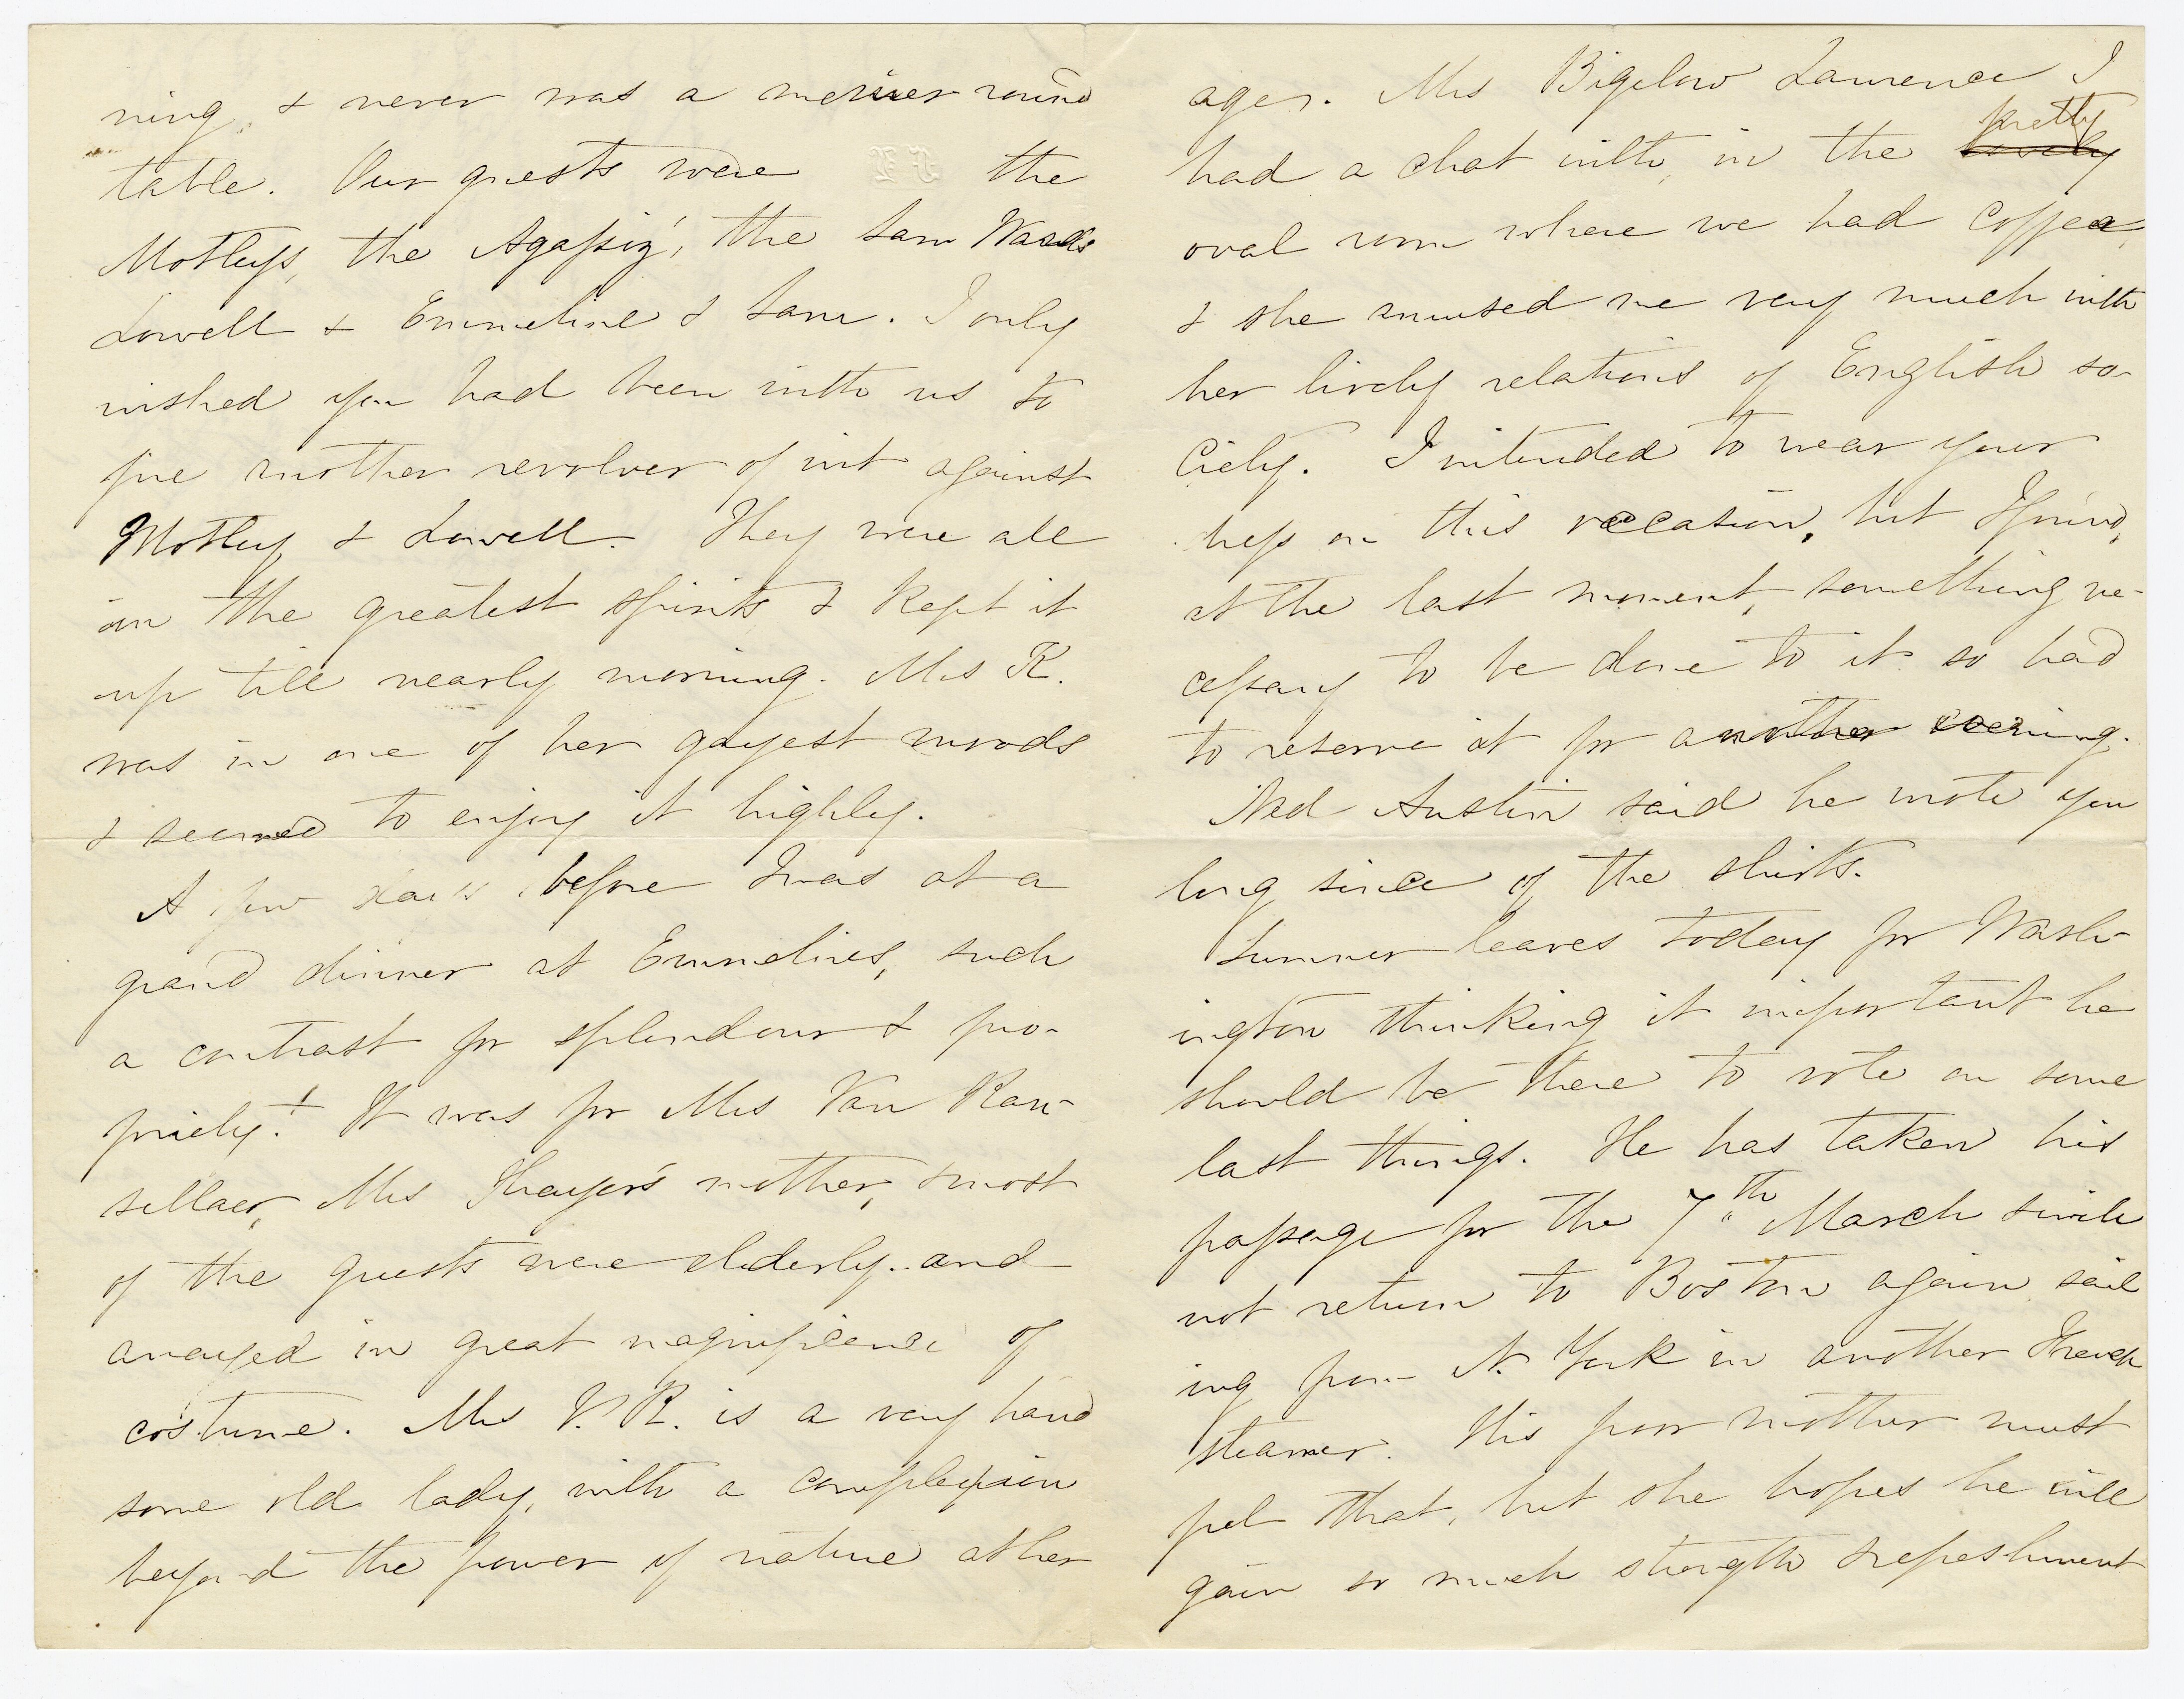 ning, & never was a merrier round
table. Our guests were the
Motleys, the Agassiz', the Sam Wards
Lowell & Emmeline & Sam. I only
wished you had been with us to
fire another revolver of wit against
Motley & Lowell. They were all
in the greatest spirits & kept it
up till nearly morning. Mrs K.
was in one of her gayest moods
& seemed to enjoy it highly.
A few days before I was at a
grand dinner at Emmelines, such
a contrast for splendour & pro-
priety! It was for Mrs Van Ran-
sellaer, Mrs Thayer's mother, & most
of the guests were elderly and
arrayed in great magnificence of
costume. Mrs V. R. is a very hand
some old lady, with a complexion
beyond the power of nature at her
ages. Mrs Bigelow Lawrence I
had a chat with, in the lovely pretty
oval room where we had coffee,
& she amused me very much with
her lively relations of English so-
ciety. I intended to wear your
dress on this occasion, but I found,
at the last moment, something ne-
cessary to be done to it so had
to reserve it for another evening.
Ned Austin said he wrote you
long since of the shirts.
Sumner leaves today for Wash-
ington thinking it important he
should be there to vote on some
last things. He has taken his
passage for the 7th March & will
not return to Boston again sail
ing from N. York in another French
steamer. His poor mother must
feel that, but she hopes he will
gain so much strength & refreshment